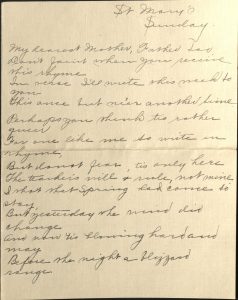 St Mary's
Sunday.
My dearest Mother, Father too,
Don't faint when you receive
this rhyme
In verse I'll write this week to
you
This once but never another time
Perhaps you think tis rather
queer
For one like me to write in
rhyme
But do not fear, tis only here
The is will & rule, not mine
I that that Spring had come to
stay
But yesterday the wind did
change
And now tis blowing hard and
may
Before the night a blizzard
range